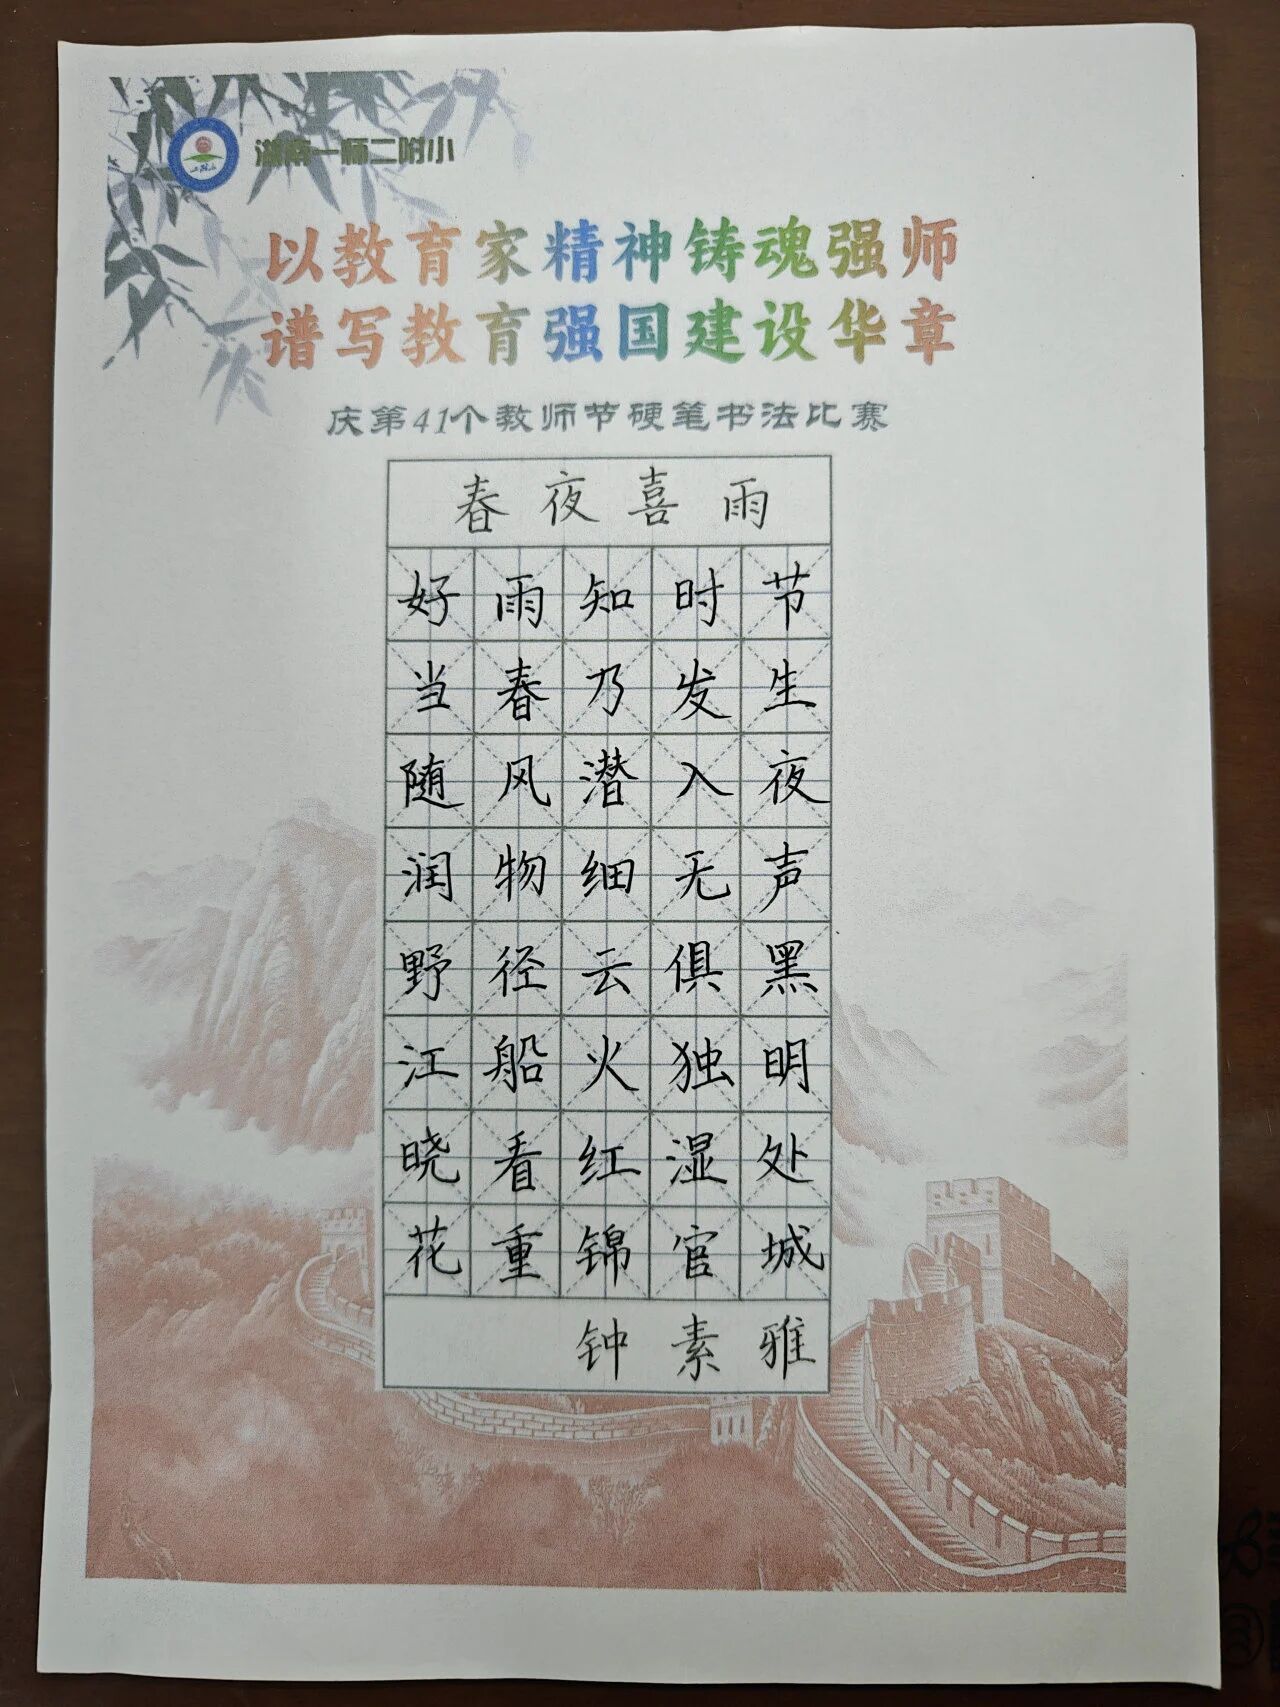 湖南一师二附小
以教育家精神铸魂强师
谱写教育强国建设华章
庆第41个教师节硬笔书法比赛
春夜喜雨
好雨知时节
当春乃发生
随风潜入夜
润物细无声
野径云俱黑
江船火独明
晓看红湿处
花重锦官城
钟素雅